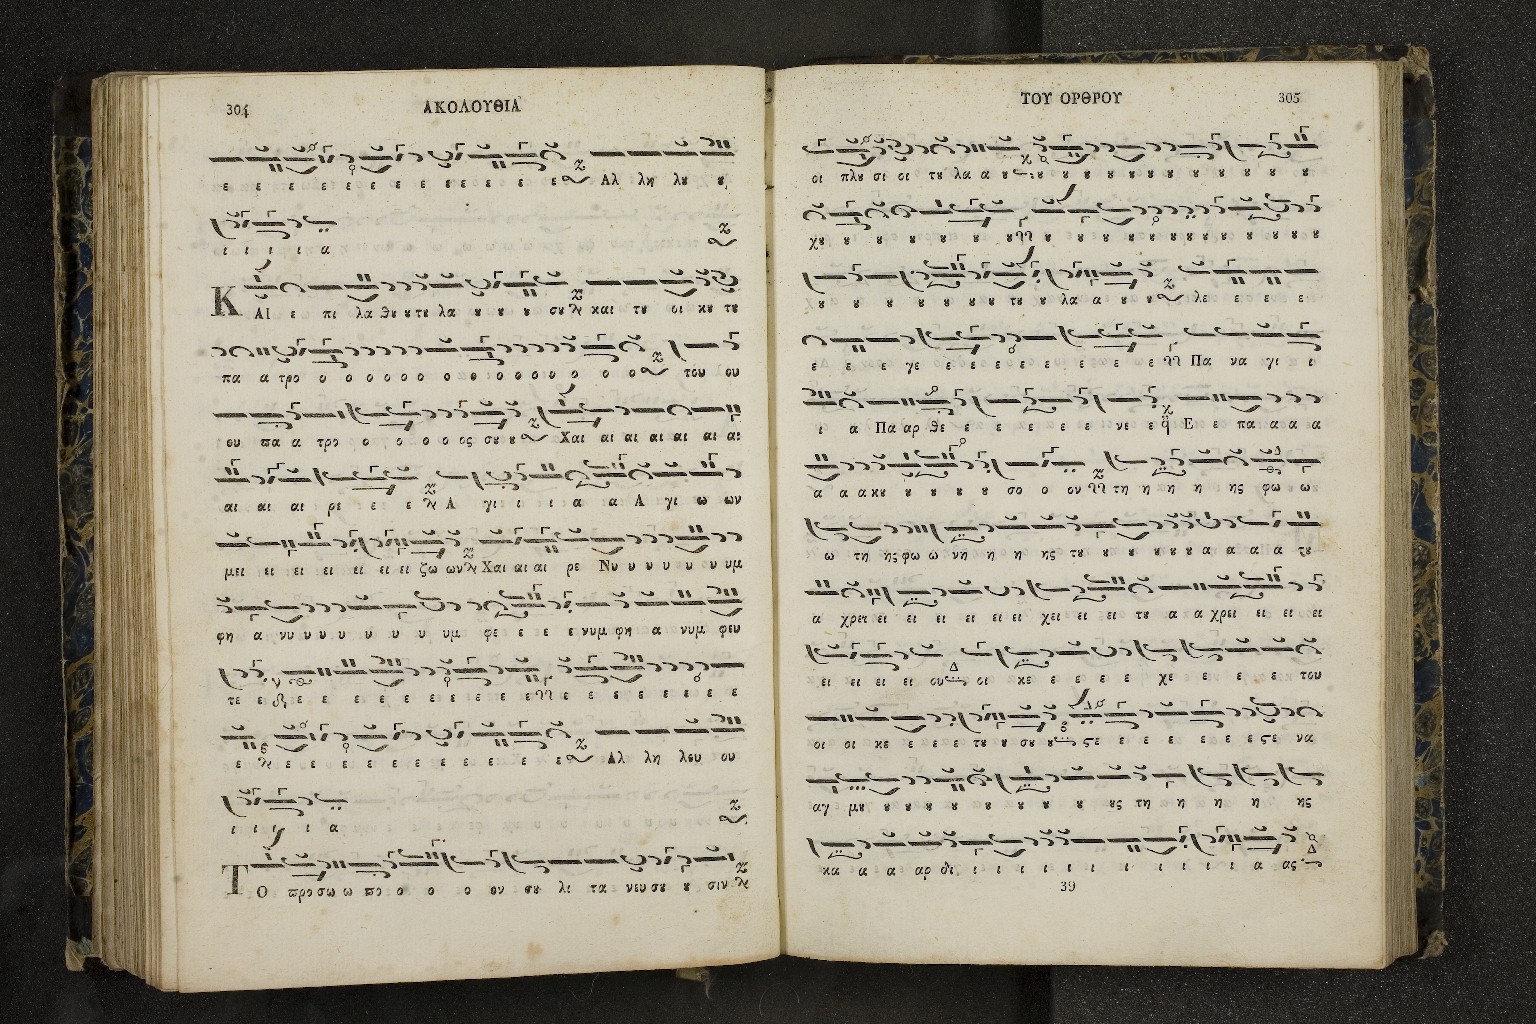 304
ΑΚΟΛΟΥΘΙΑ
ε ε ε ε ε ε ε ε ε ε ε ε ε Αλ λη λȣ ȣ
ι ι ι ι α
ΚΑΙ ε πι λα θȣ ȣ τȣ λα ȣ ȣ ȣ σȣ και τȣ οι κȣ τȣ
πα α τρο ο ο ο ο ο ο ο ο ο ο ο ο ο ο ο ο του ου
ου πα α τρο ο ο ο ο ος σου ȣ Χαι αι αι αι αι αι αι
αι αι αι ρε ε ε Α γι ι ι α α Α γι ω ων
μει ει ει ει ει ει ει ζω ων Χαι αι αι ρε Νυ υ υ υ υ υ υμ
φη α νυ υ υ υ υ υ υ υμ φε ε ε ε νυμ φη α νυμ φευ
τε ε ε ε ε ε ε ε ε ε ε ε ε ε ε ε ε ε ε
ε ε ε ε ε ε ε ε ε ε ε ε Αλ λη λου ου
ι ι ι ι α
ΤΟ προ σω ω πο ο ο ο ον σȣ λι τα νευ σȣ ȣ σιν
ΤΟΥ ΟΡΘΡΟΥ
305
οι πλȣ σι οι τȣ λα α ȣ ȣ ȣ ȣ ȣ ȣ ȣ ȣ ȣ ȣ ȣ ȣ
χȣ ȣ ȣ ȣ ȣ ȣ ȣ ȣ ȣ ȣ ȣ ȣ ȣ ȣ ȣ ȣ ȣ ȣ ȣ
ȣ ȣ ȣ ȣ ȣ ȣ ȣ ȣ τȣ ȣ λα α ȣ ȣ λε ε ε ε
ε ε ε γε ε ε ε ε ε ε ε ε ε Πα να γι ι
ι α Πα αρ θε ε ε ε ε ε νε ε Ε ε πα α α α
α α α κȣ ȣ ȣ ȣ ȣ ȣ σο ο ον τη η η η ης φω ω
ω τη ης φω ω νη η η ης τȣ ȣ ȣ ȣ ȣ ȣ α α α α τȣ
α χρει ει ει ει ει ει χει ει ει τȣ α α χρει ει ει ει
ει ει ει ει ου οι κε ε ε ε ε χε ε ε ε του
οι οι κε ε ε ε τȣ ȣ σȣ ȣ ςε ε ε ε ε ε ε ςε να
αγ μȣ ȣ ȣ ȣ ȣ ȣ ȣ ȣ ȣς τη η η η η ης
κα α α αρ δι ι ι ι ι ι ι ι ι ι ι α ας
39